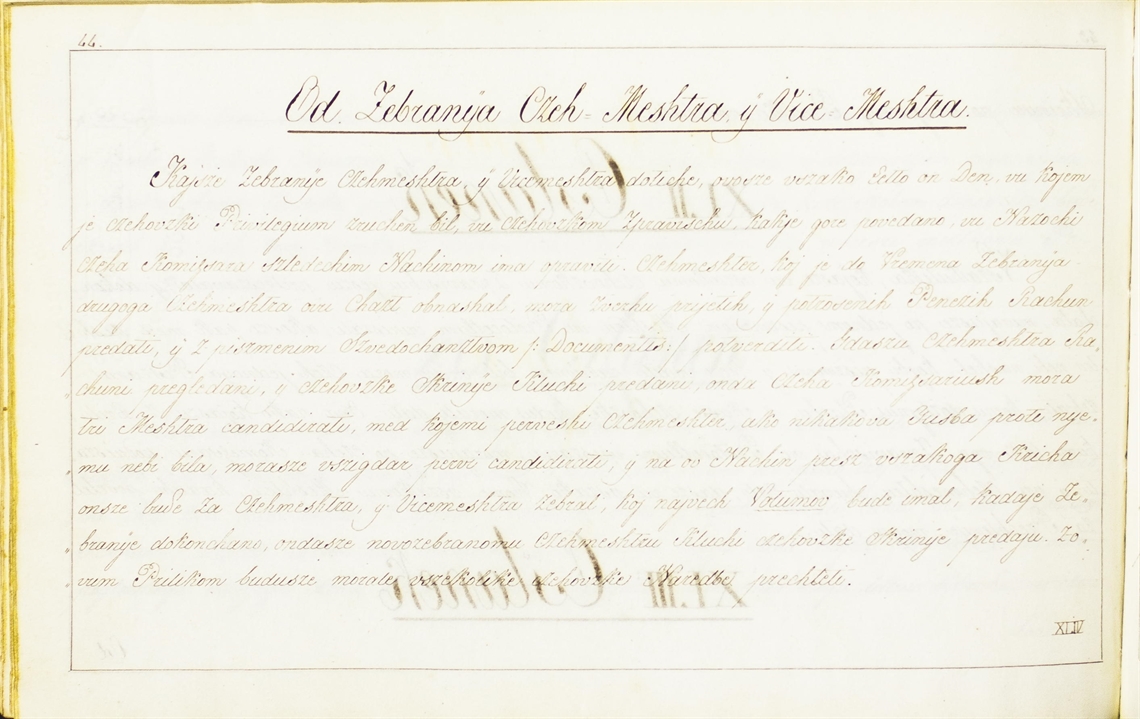 44.
Od. Zebranÿa Czeh=Meshtra. ÿ Vice=Meshtra.
Kajsze Zebranÿe Czehmeshtra, ÿ Vicemeshtra dotiche, ovosze vszako Letto on Den, vu kojem
je czehovzki Privilegium zruchen bil, vu czehovzkom Zpravischu, kakje gore povedano, vu Nazochi
Czeha Komiszara szledechim Nachinom ima opraviti. Czehmeshter, koj je do Vremena Zebranÿa
drugoga Czehmeshtra ovu Chazt obnashal, mora zverhu prijetih, ÿ potrosenih Penezih Rachun
predati, ÿ z piszmenim Szvedochanztvom /: Documentis :/ potverditi. Gdaszu Czehmeshtra Ra„
„chuni pregledani, ÿ czehovzke Skrinÿe Kluchi predani, onda Czeha Komiszariush mora
tri Meshtra candidirati, med kojemi perveshi Czehmeshter, ako nikakova Tusba proti nye„
„mu nebi bila, morasze vszigdar pervi candidirati, ÿ na ov Nachin prez vszakoga Kricha
onsze bude za Czehmeshtra, ÿ Vicemeshtra zebral, koj najvech Votumov bude imal, kadaje Ze„
„branÿe dokonchano, ondasze novozebranomu Czehmeshtru Kluchi czehovzke Skrinÿe predaju. Zo„
„vum Prilikom budusze morale vszekolike czehovzke Naredbe prechteti.
XLIV